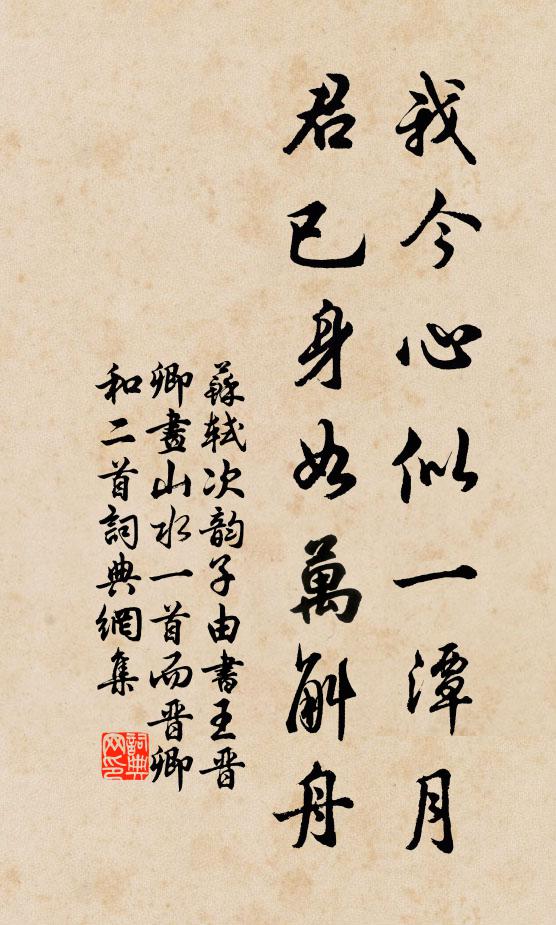 我今心似一潭月
君已身如萬斛舟
蘇軾次韵子由書王晋
卿畫山水一首而晋卿
和二首詞典網集
詞典
网印